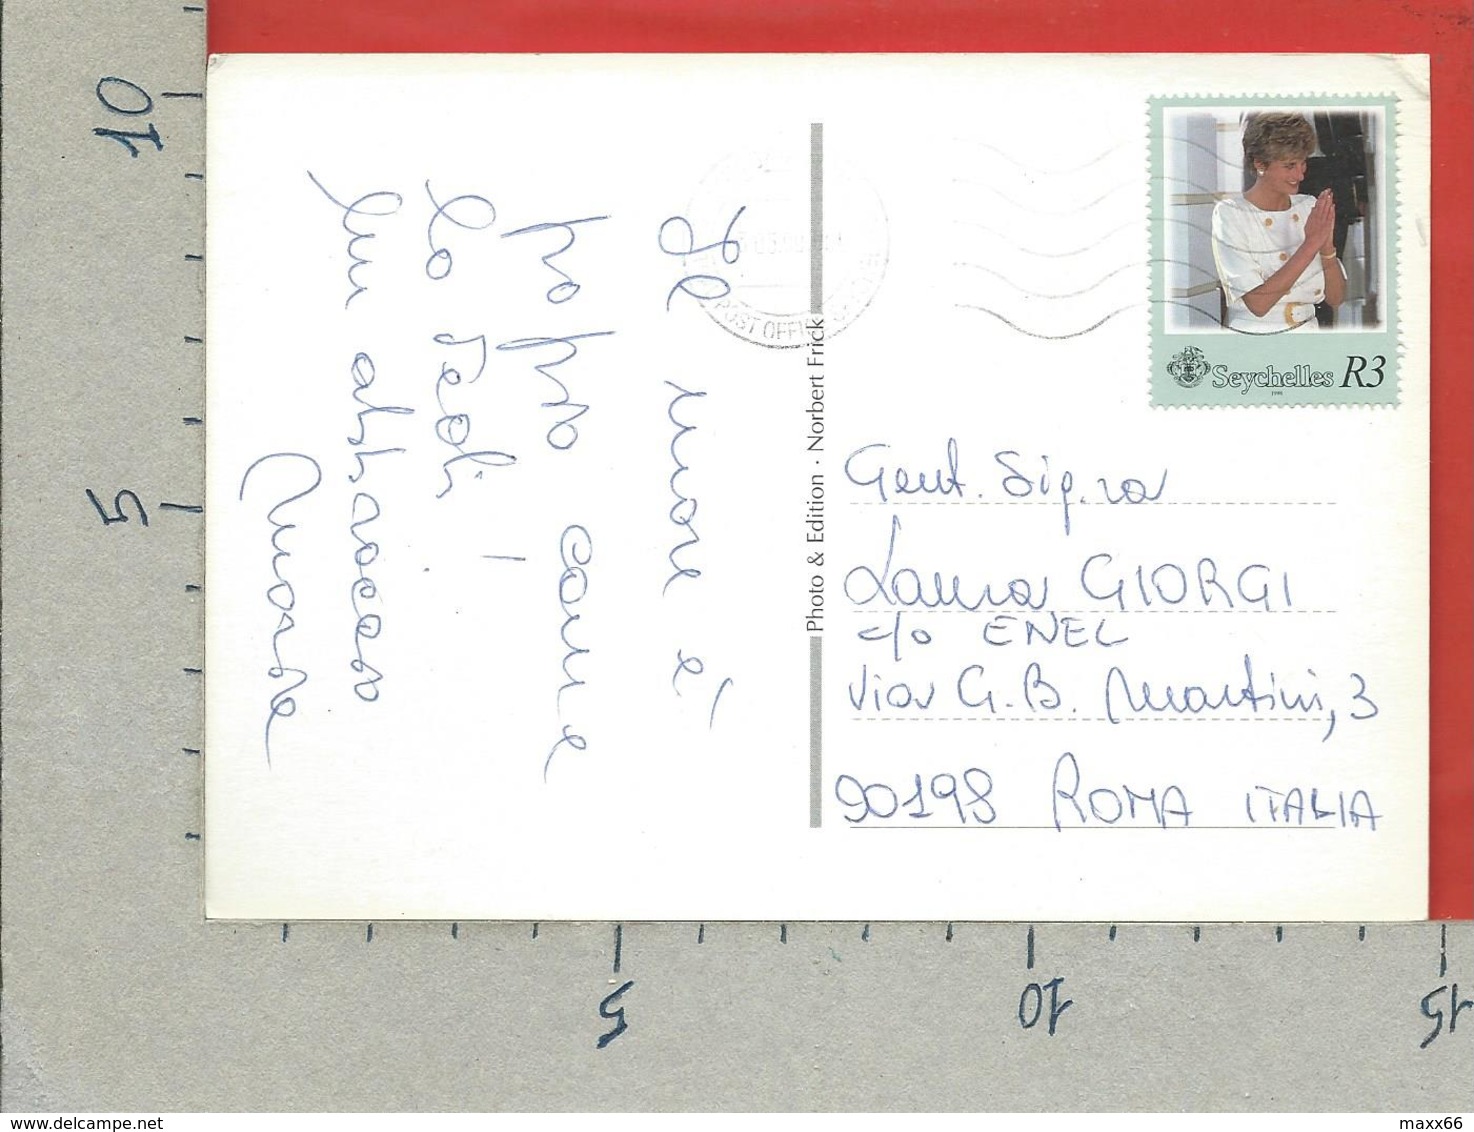 Il mare è
troppo come
lo sedi!
Un abbraccio
POST OFFI
Photo & Edition · Norbert Frick
Seychelles R3
1998
Gent. Sig.ra
Laura GIORGI
c/o ENEL
Via G.B. Martini, 3
00198 ROMA ITALIA
10
5
5
10
15
maxx66